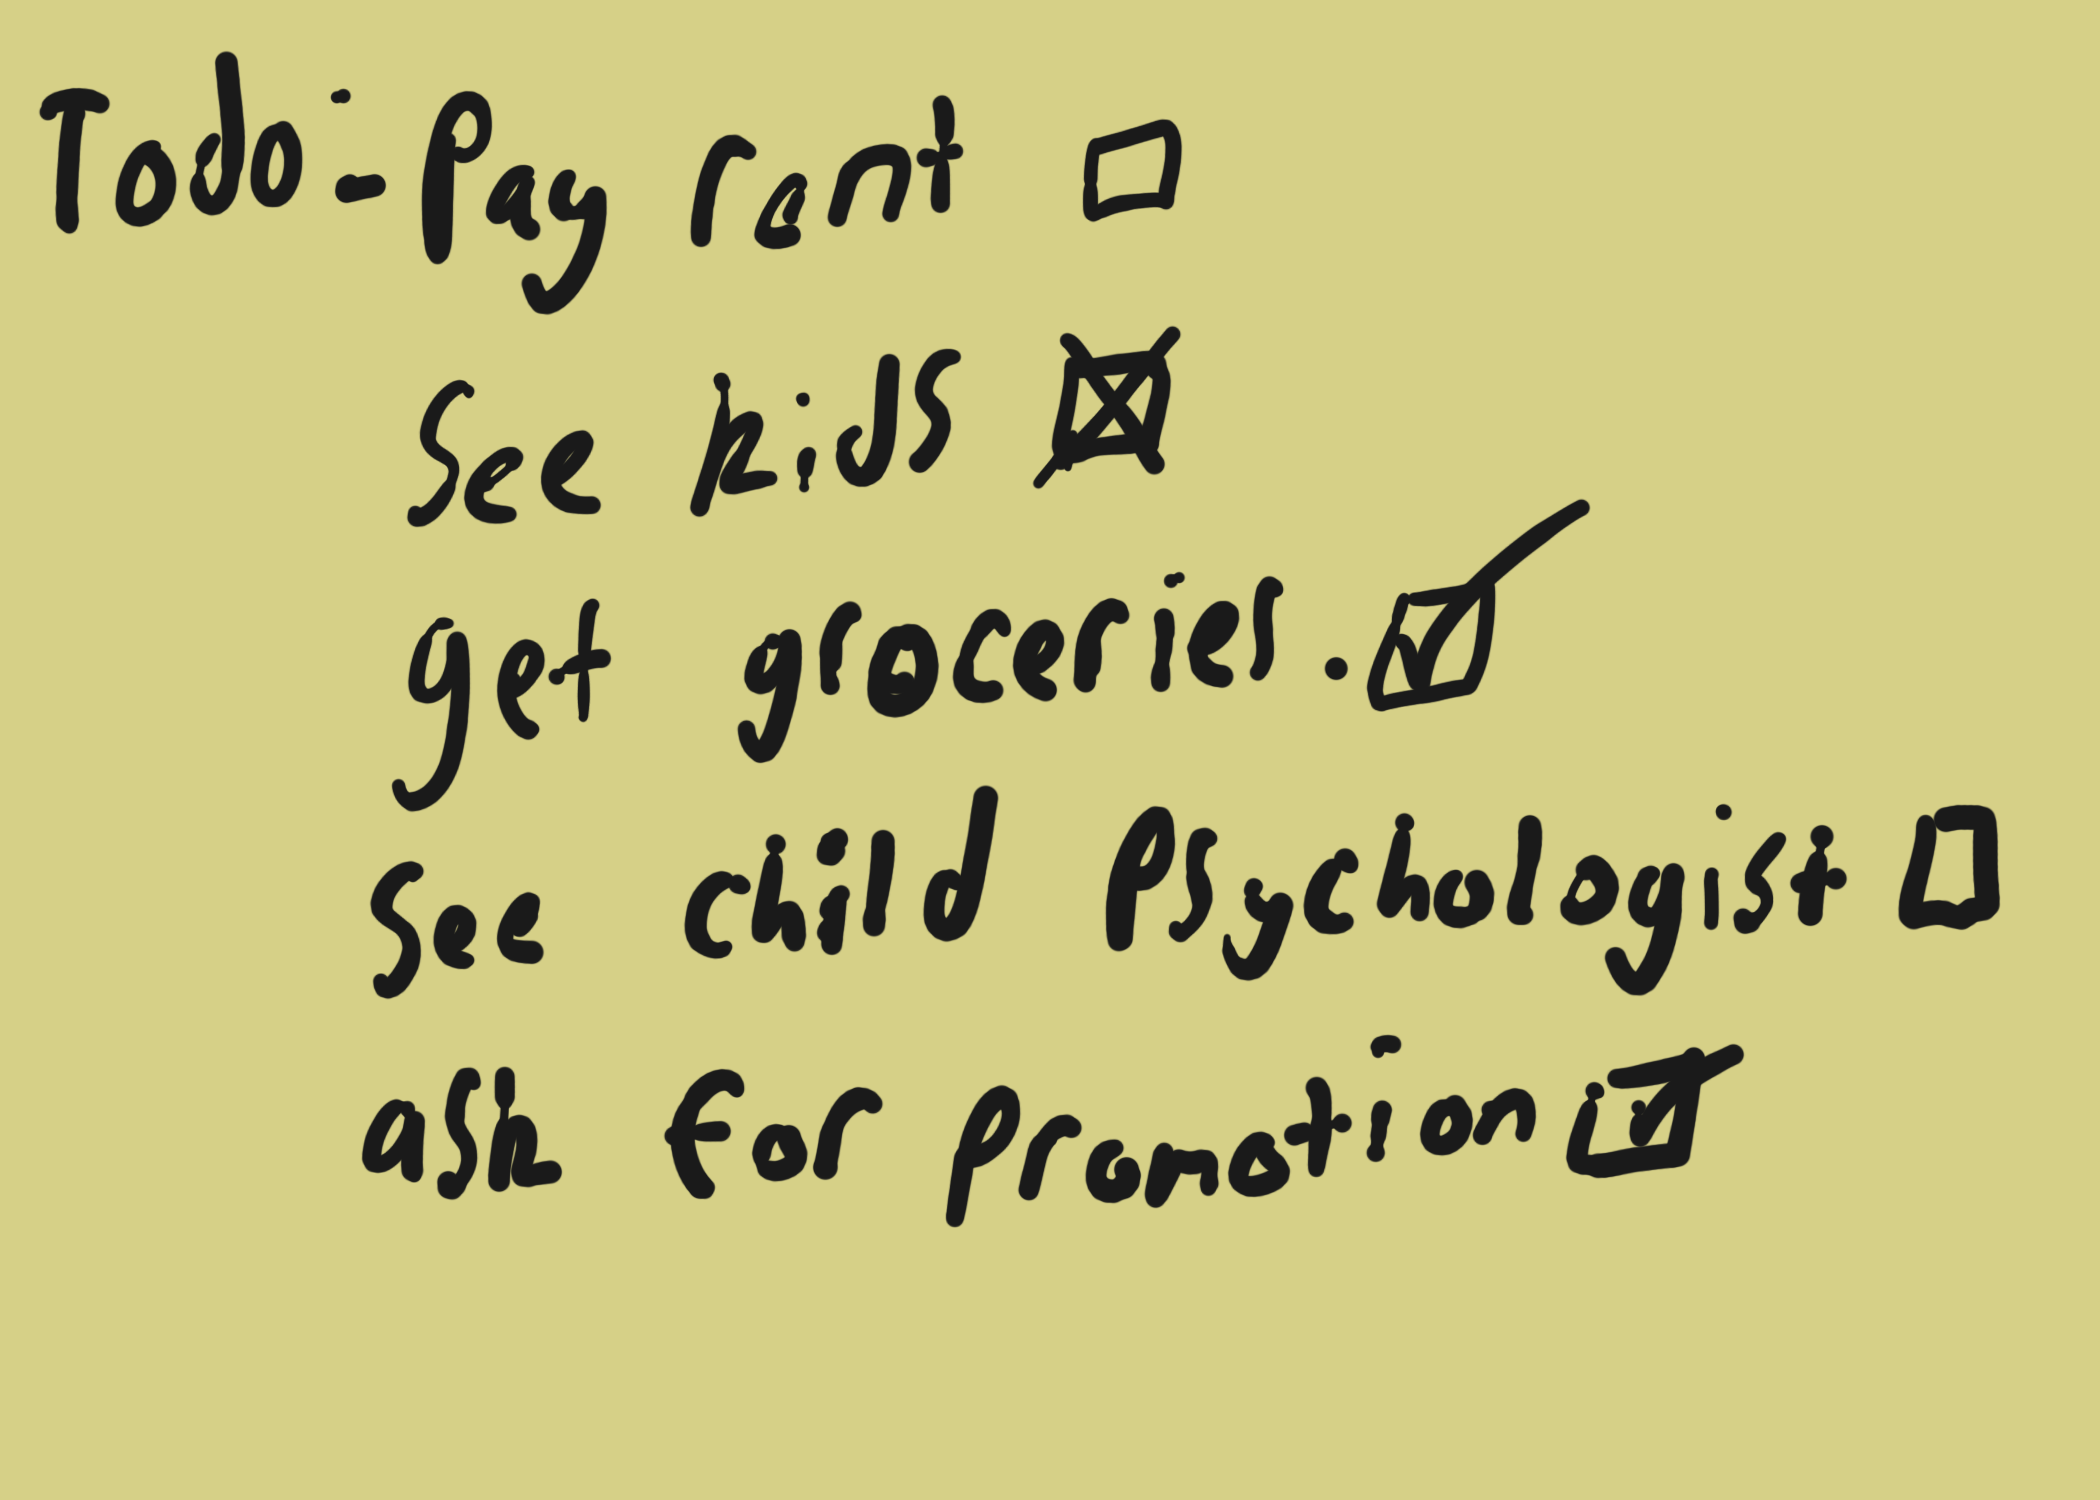 Todo:- Pay rent ☐
See kids ☒
get groceries. ☑
See child Psychologist ☐
ask for promotion ☑